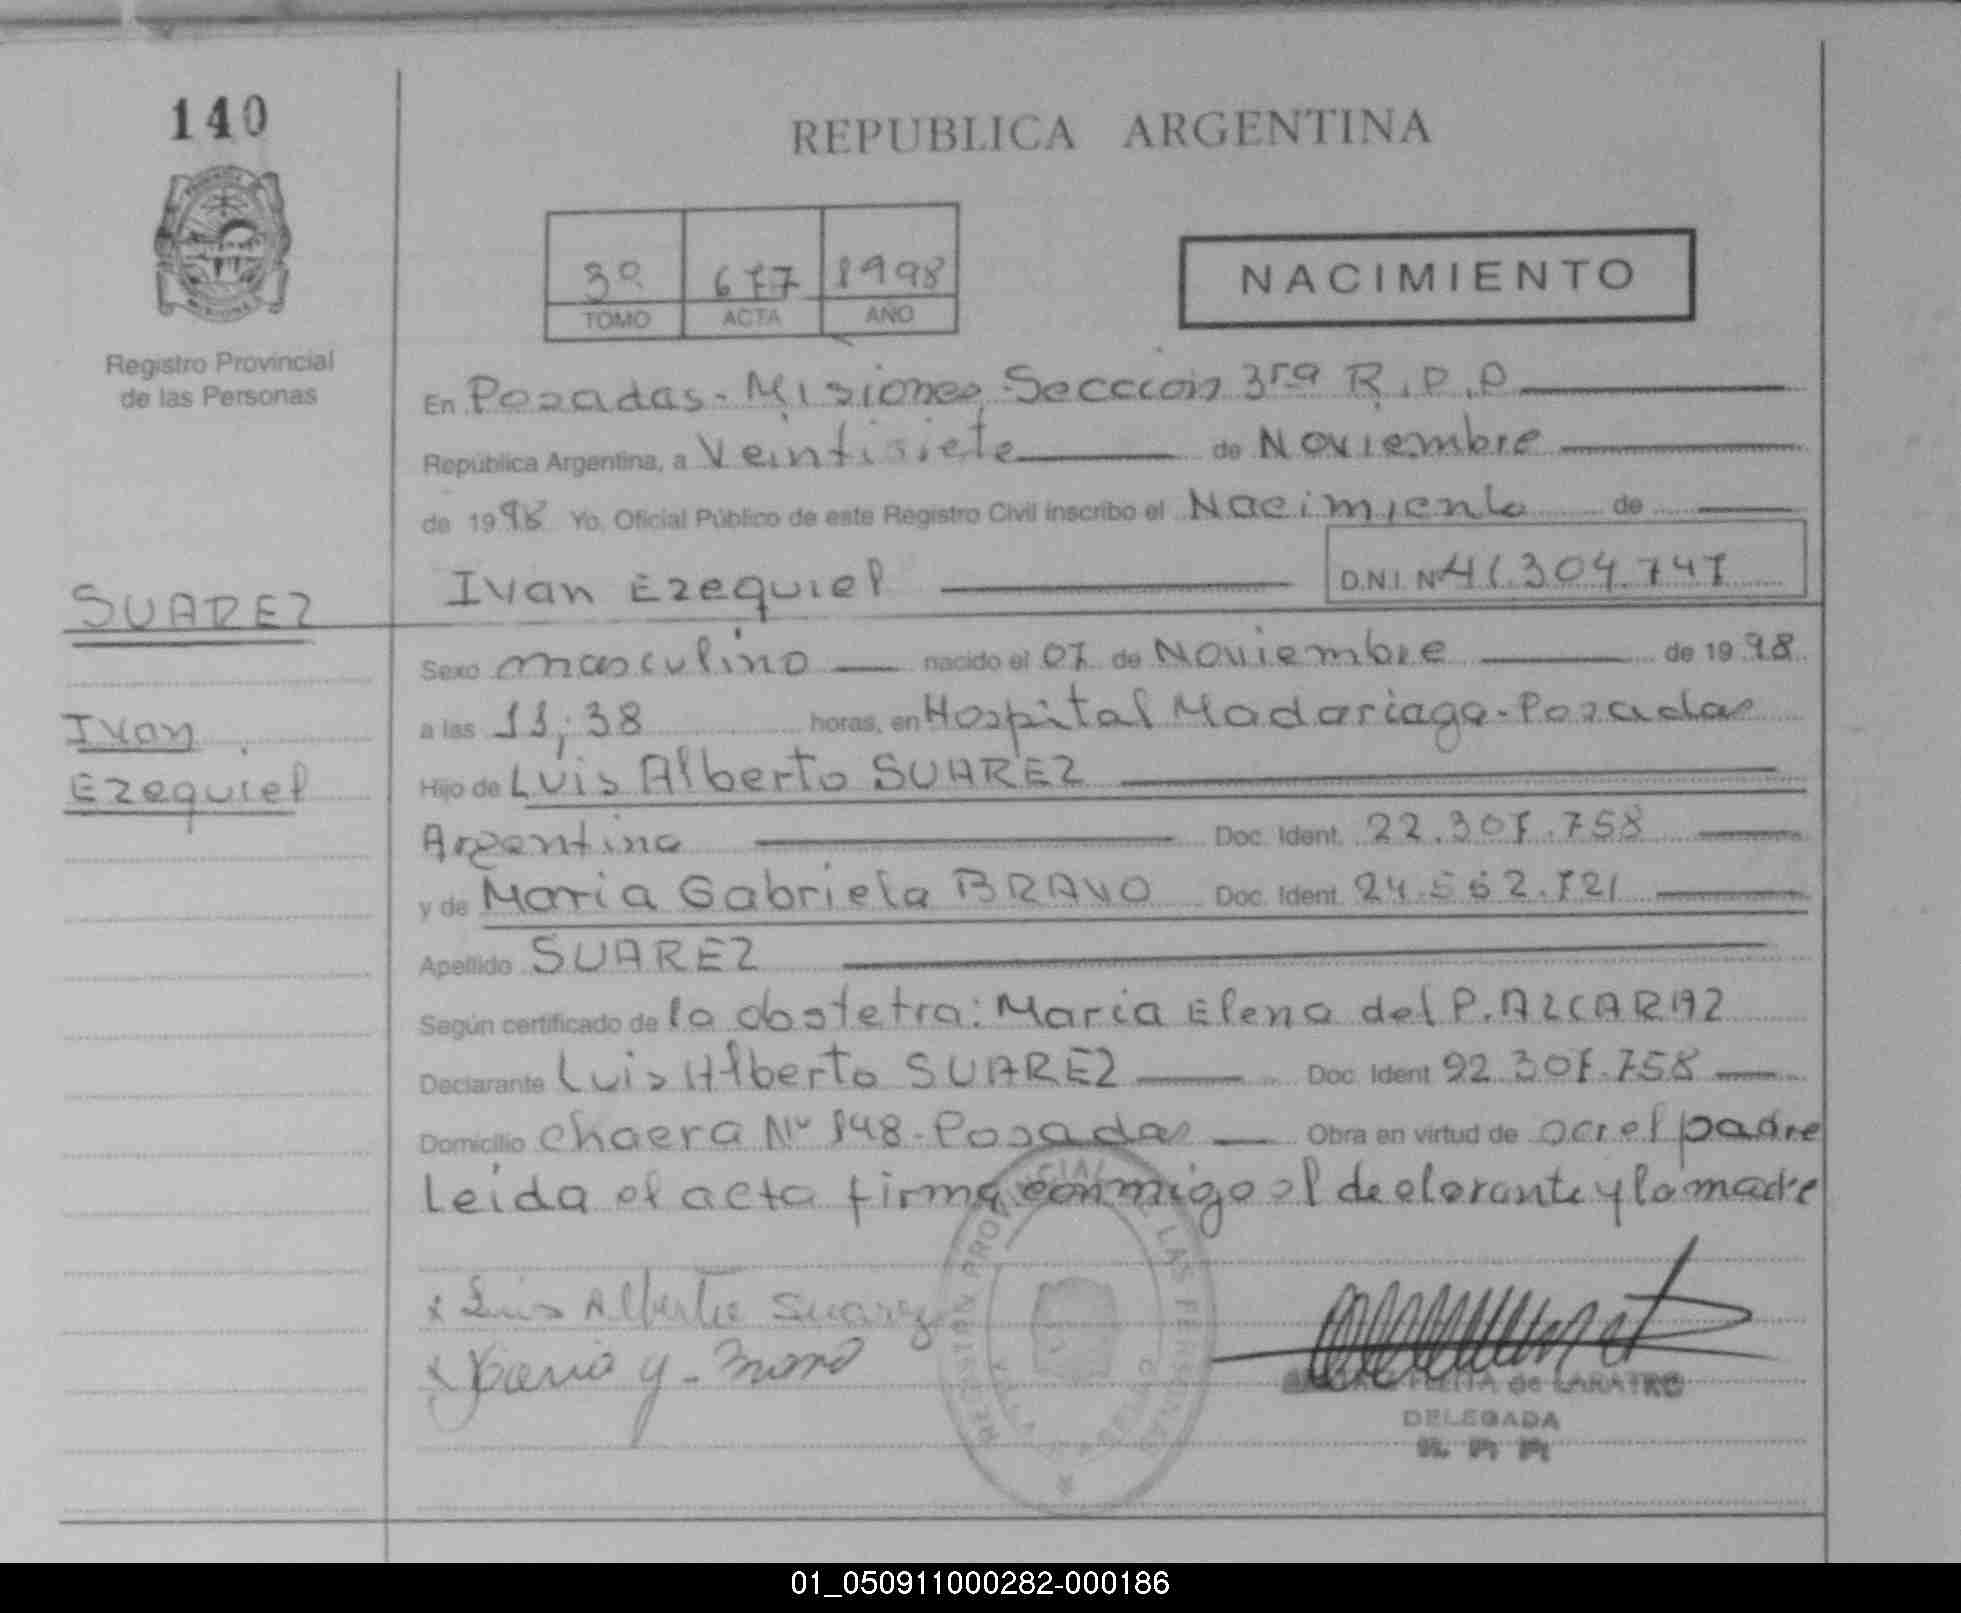 140
REPUBLICA ARGENTINA
3º 677 1998
TOMO ACTA AÑO
NACIMIENTO
Registro Provincial
de las Personas
En Posadas - Misiones Seccion 3ra R.P.P
República Argentina, a Veintisiete de Noviembre
de 1998 Yo, Oficial Público de este Registro Civil inscribo el Nacimiento de
Ivan Ezequiel D.N.I. Nº 41.304.747
SUAREZ
Ivan
Ezequiel
Sexo masculino nacido el 07 de Noviembre de 1998
a las 11;38 horas, en Hospital Madariaga - Posadas
Hijo de Luis Alberto SUAREZ
Argentino Doc. Ident. 22.307.758
y de Maria Gabriela BRAVO Doc. Ident. 24.552.721
Apellido SUAREZ
Según certificado de la obstetra: Maria Elena del P. ALCARAZ
Declarante Luis Alberto SUAREZ Doc. Ident 92.307.758
Domicilio chacra Nº 148 - Posadas Obra en virtud de ser el padre
Leida el acta firma conmigo el declarante y la madre
x Luis Alberto Suarez
REGISTRO PROVINCIAL DE LAS PERSONAS
DELEGADA
01_050911000282-000186